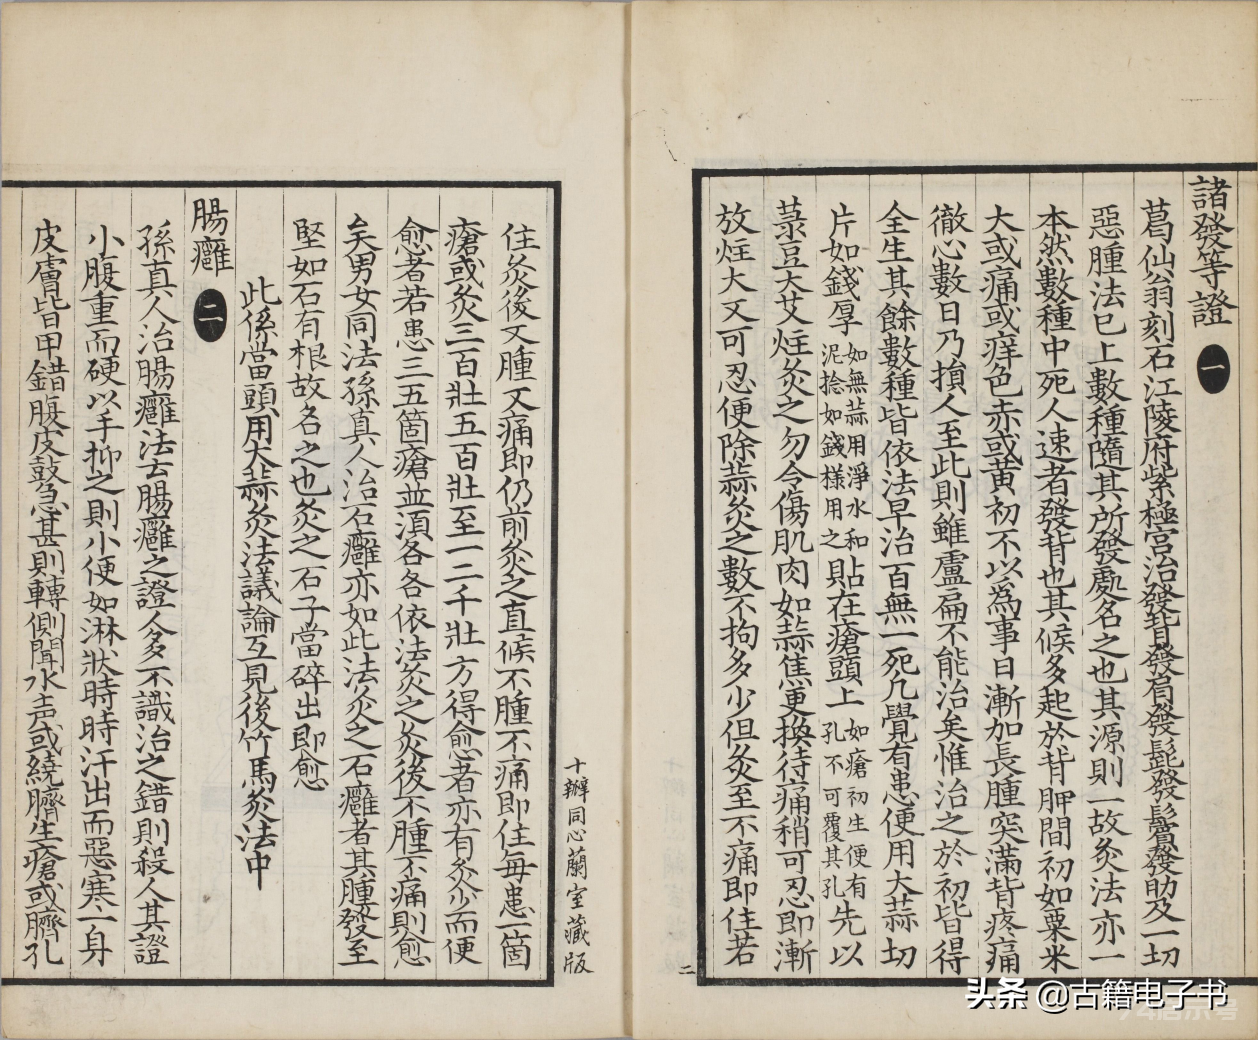 諸發等證 一
葛仙翁刻石江陵府紫極宮治發背發肩發髭發鬢發肋及一切
惡腫法已上數種隨其所發處名之也其源則一故灸法亦一
本然數種中死人速者發背也其候多起於背胛間初如粟米
大或痛或痒色赤或黄初不以爲事日漸加長腫突滿背疼痛
徹心數日乃損人至此則雖盧扁不能治矣惟治之於初皆得
全生其餘數種皆依法早治百無一死凡覺有患便用大蒜切
片如錢厚如無蒜用淨水和泥捻如錢樣用之貼在瘡頭上如瘡初生便有孔不可覆其孔先以
菉豆大艾炷灸之勿令傷肌肉如蒜焦更換待痛稍可忍即漸
放炷大又可忍便除蒜灸之數不拘多少但灸至不痛即住若
二
十瓣同心蘭室藏版
住灸後又腫又痛即仍前灸之直候不腫不痛即住每患一箇
瘡或灸三百壯五百壯至一二千壯方得愈者亦有灸少而便
愈者若患三五箇瘡並湏各各依法灸之灸後不腫不痛則愈
矣男女同法孫真人治石癰亦如此法灸之石癰者其腫發至
堅如石有根故名之也灸之石子當碎出即愈
此係當頭用大蒜灸法議論互見後竹馬灸法中
腸癰 二
孫真人治腸癰法云腸癰之證人多不識治之錯則殺人其證
小腹重而硬以手抑之則小便如淋狀時時汗出而惡寒一身
皮膚皆甲錯腹皮鼓急甚則轉側聞水声或繞臍生瘡或臍孔
头条 @古籍电子书